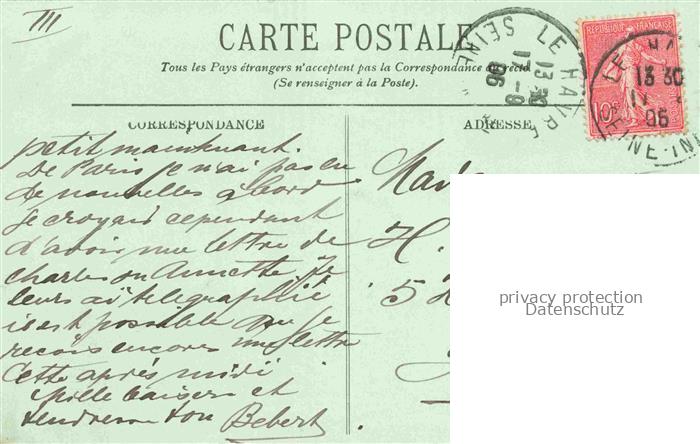 III
CARTE POSTALE
Tous les Pays étrangers n'acceptent pas la Correspondance au recto
(Se renseigner à la Poste).
CORRESPONDANCE
ADRESSE
RÉPUBLIQUE FRANÇAISE
10c
LE HAVRE
13 30
17-9
06
SEINE
LE HA
13 30
17
06
SEINE-IN
petit maintenant.
De Paris je n'ai pas eu
de nouvelles à bord
Je croyais cependant
d'avoir une lettre de
Charles ou Annette. Je
leurs ai télégraphié
il est possible que je
recois encores une lettre
Cette après midi
Mille baisers et
tendresse ton Bebert
H.
5
privacy protection
Datenschutz